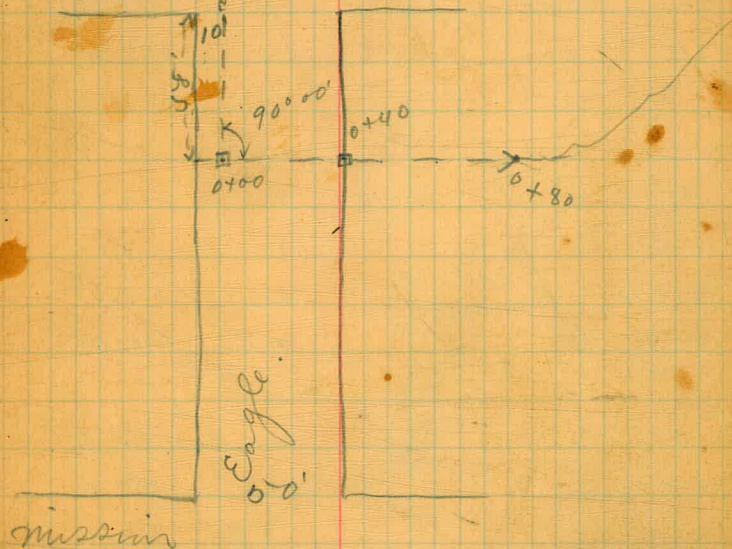 10'
90° 00'
0+40
0+00
0+80
Eagle
mission